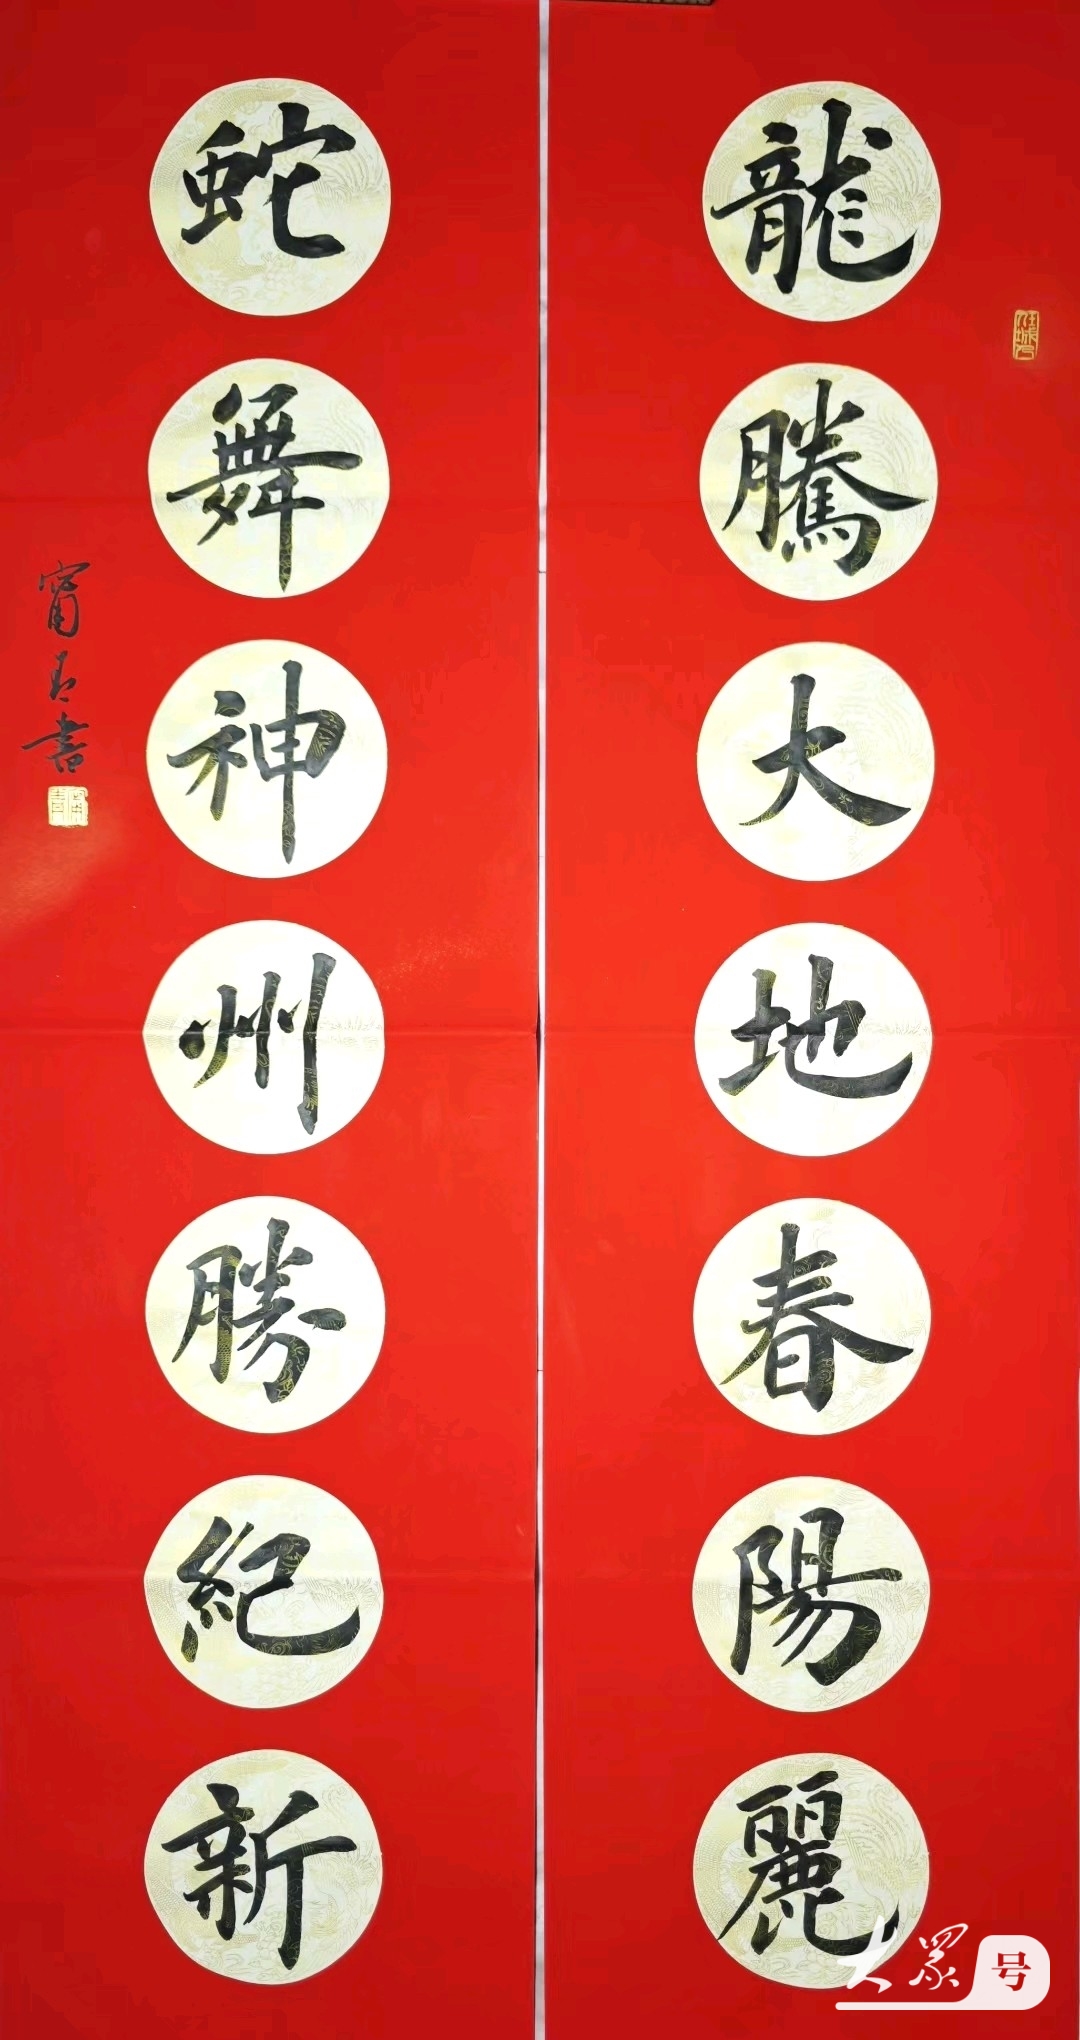 龍騰大地春陽麗
蛇舞神州勝紀新
大眾号